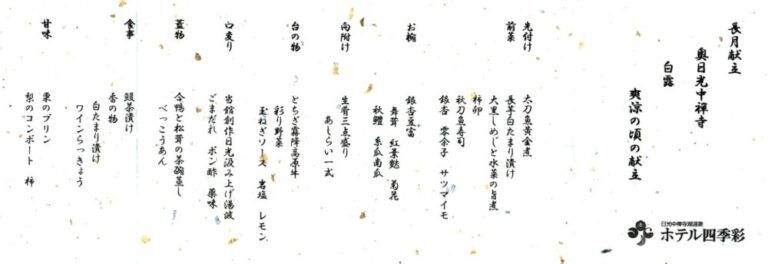 長月献立
奥日光中禅寺
白露
爽涼の頃の献立
先付け
前菜
太刀魚黄金煮
長芋白たまり漬け
大黒しめじと水菜の旨煮
柿卵
秋刀魚寿司
銀杏 零余子 サツマイモ
お椀
銀杏豆富
舞茸 紅葉麩 菊花
秋鱧 糸瓜南瓜
向附け
生肴三点盛り
あしらい一式
台の物
とちぎ霧降高原牛
彩り野菜
玉ねぎソース 岩塩 レモン
口変り
当館創作日光汲み上げ湯波
ごまだれ ポン酢 薬味
蓋物
合鴨と松茸の茶碗蒸し
べっこうあん
食事
鰻茶漬け
香の物
白たまり漬け
ワインらっきょう
甘味
栗のプリン
梨のコンポート 柿
日光中禅寺湖温泉
ホテル四季彩